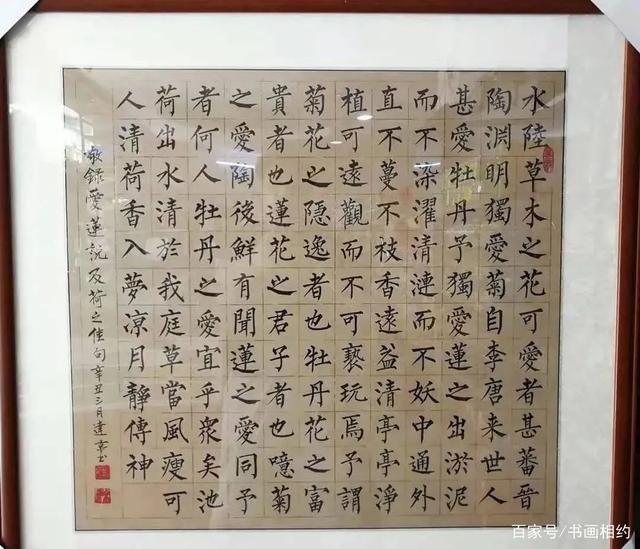 水陸草木之花可愛者甚蕃晉
陶淵明獨愛菊自李唐来世人
甚愛牡丹予獨愛蓮之出淤泥
而不染濯清漣而不妖中通外
直不蔓不枝香遠益清亭亭淨
植可遠觀而不可褻玩焉予謂
菊花之隱逸者也牡丹花之富
貴者也蓮花之君子者也噫菊
之愛陶後鮮有聞蓮之愛同予
者何人牡丹之愛宜乎衆矣池
荷出水清於我庭草當風瘦可
人清荷香入夢凉月靜傳神
敬錄愛蓮說及荷之佳句辛丑三月建
百家号/书画相约